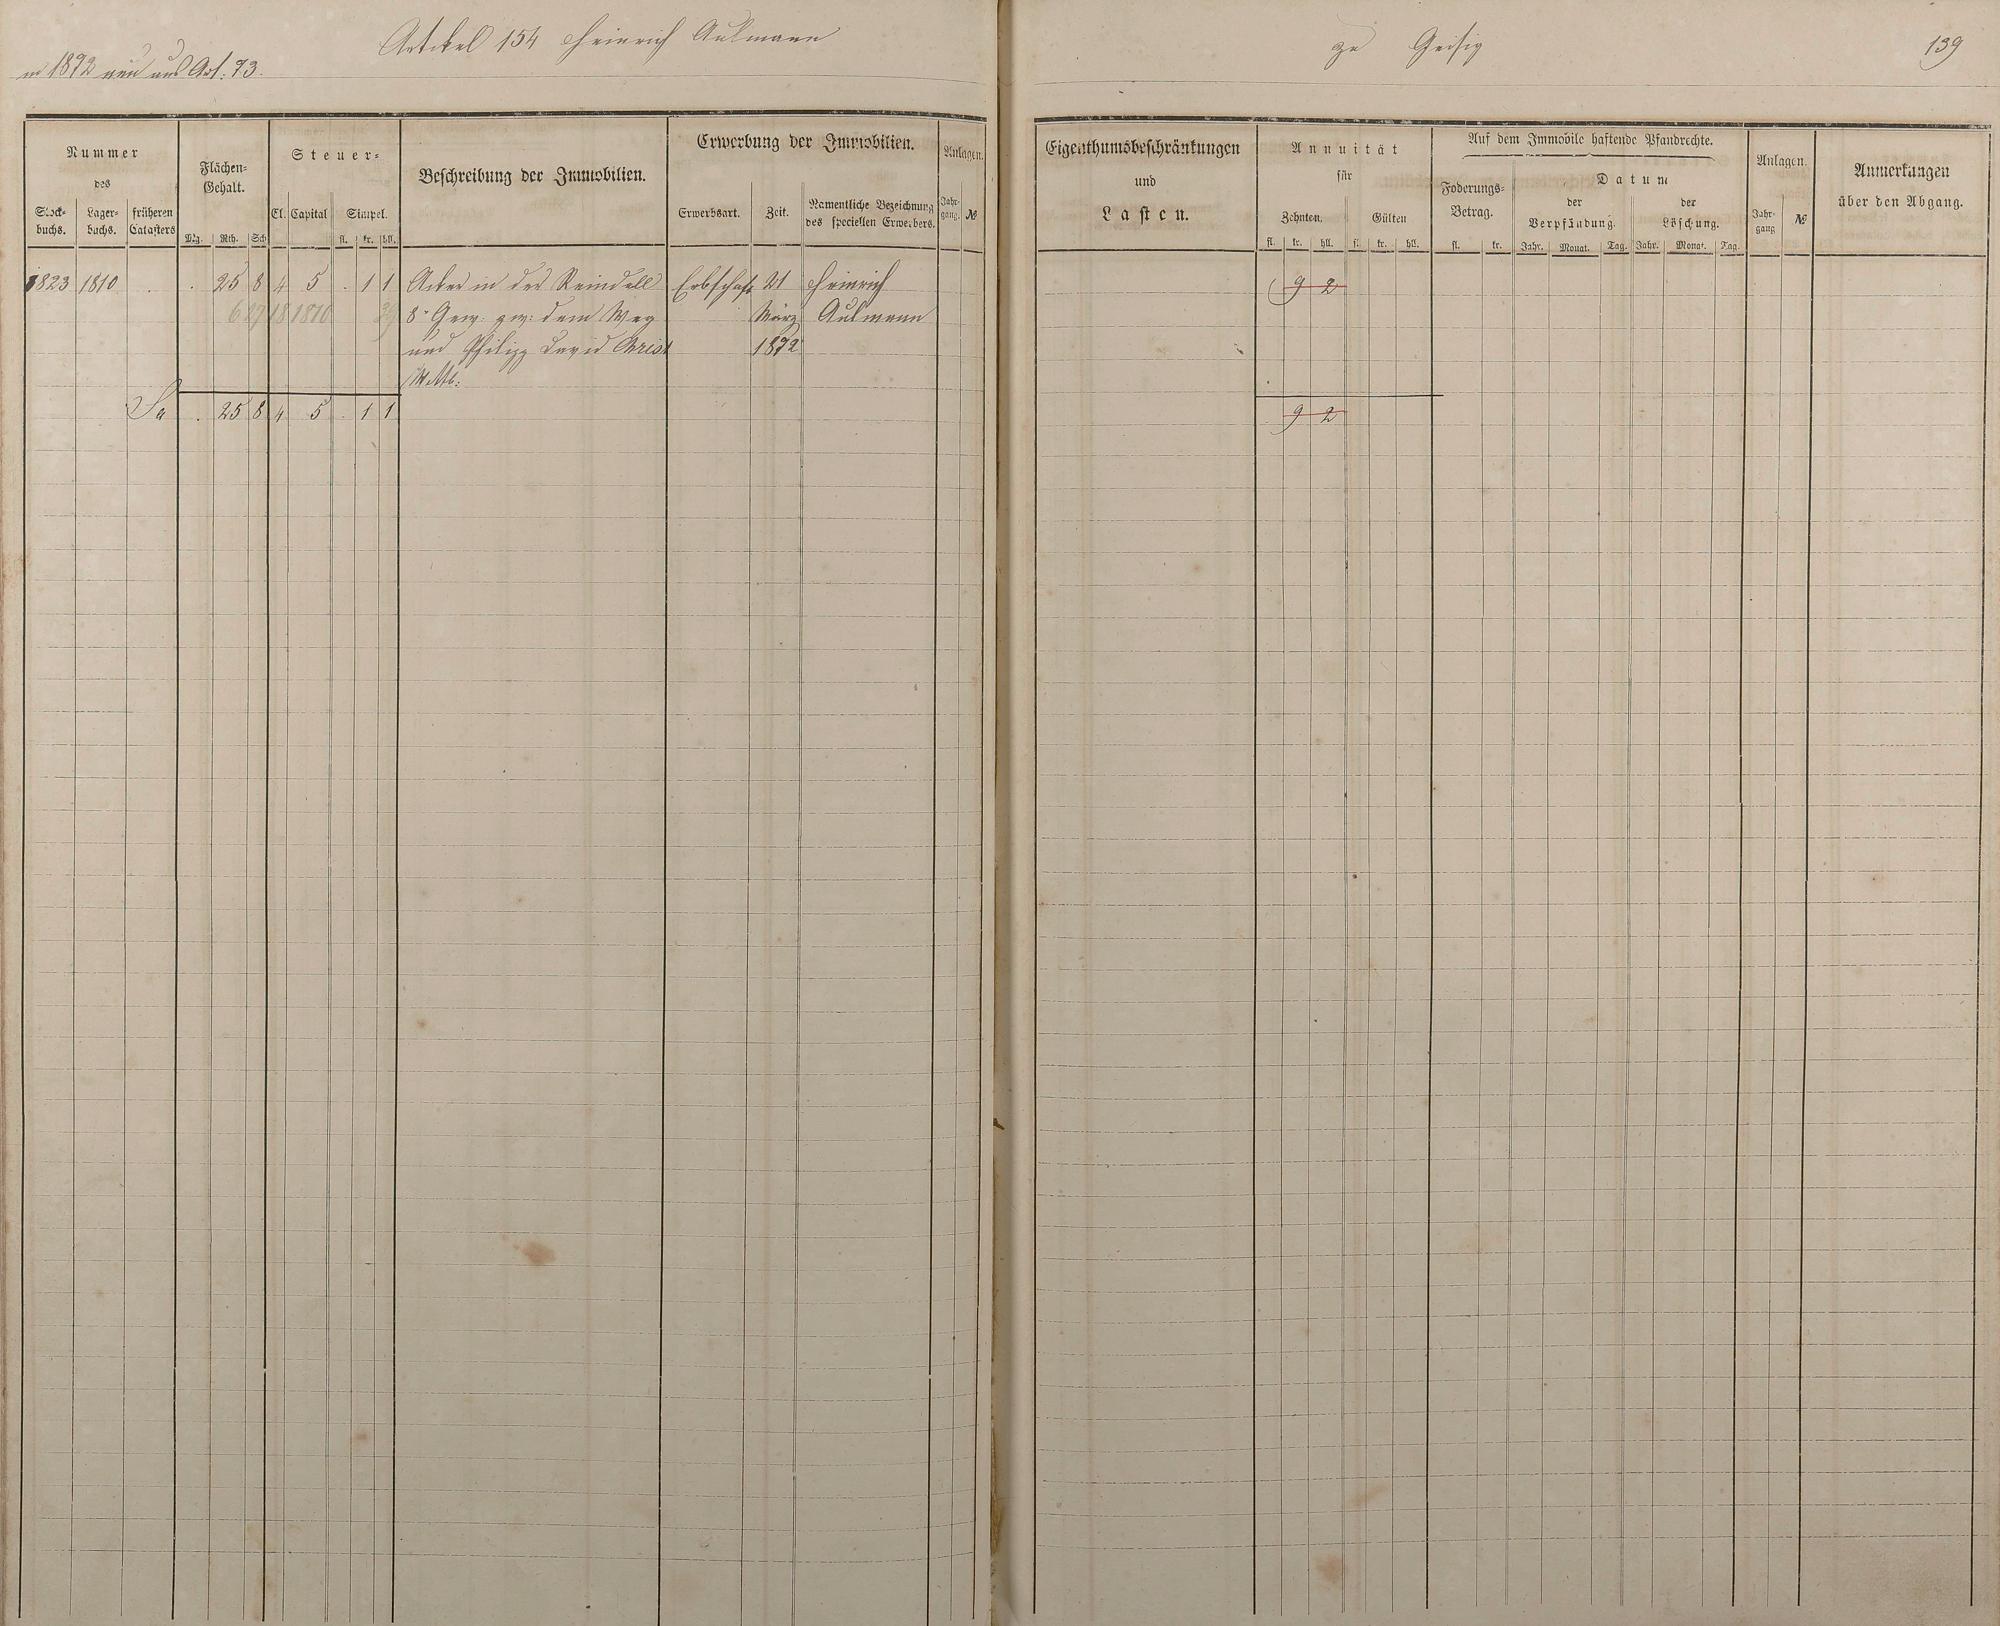 Artikel 154 Heinrich Aulmann
zu Geisig
139
in 1872 neu aus Art. 73.
Nummer
des
Stock-
buchs.
Lager-
buchs.
früheren
Catasters
Flächen-
Gehalt.
Mg. Rth. Sch
Steuer-
Cl. Capital Simpel.
fl. kr. hll.
Beschreibung der Immobilien.
Erwerbung der Immobilien.
Erwerbsart. Zeit.
Namentliche Bezeichnung
des speciellen Erwerbers.
Anlagen.
Jahr-
gang. №
Eigenthumsbeschränkungen
und
Lasten.
Annuität
für
Zehnten. Gülten
fl. kr. hll. fl. kr. hll.
Auf dem Immobile haftende Pfandrechte.
Foderungs-
Betrag.
fl. kr.
Datum
der
Verpfändung.
Jahr. Monat. Tag.
der
Löschung.
Jahr. Monat. Tag.
Anlagen.
Jahr-
gang №
Anmerkungen
über den Abgang.
1823 1810 . . 25 8 4 5 . 1 1 Acker in der Reindell Erbschaft 21 Heinrich 9 2
6 27 18 1810 39 8r Gew: zw: dem Weg März Aulmann
und Philipp David Christ 1872
Wttb:
Sa . 25 8 4 5 . 1 1 9 2